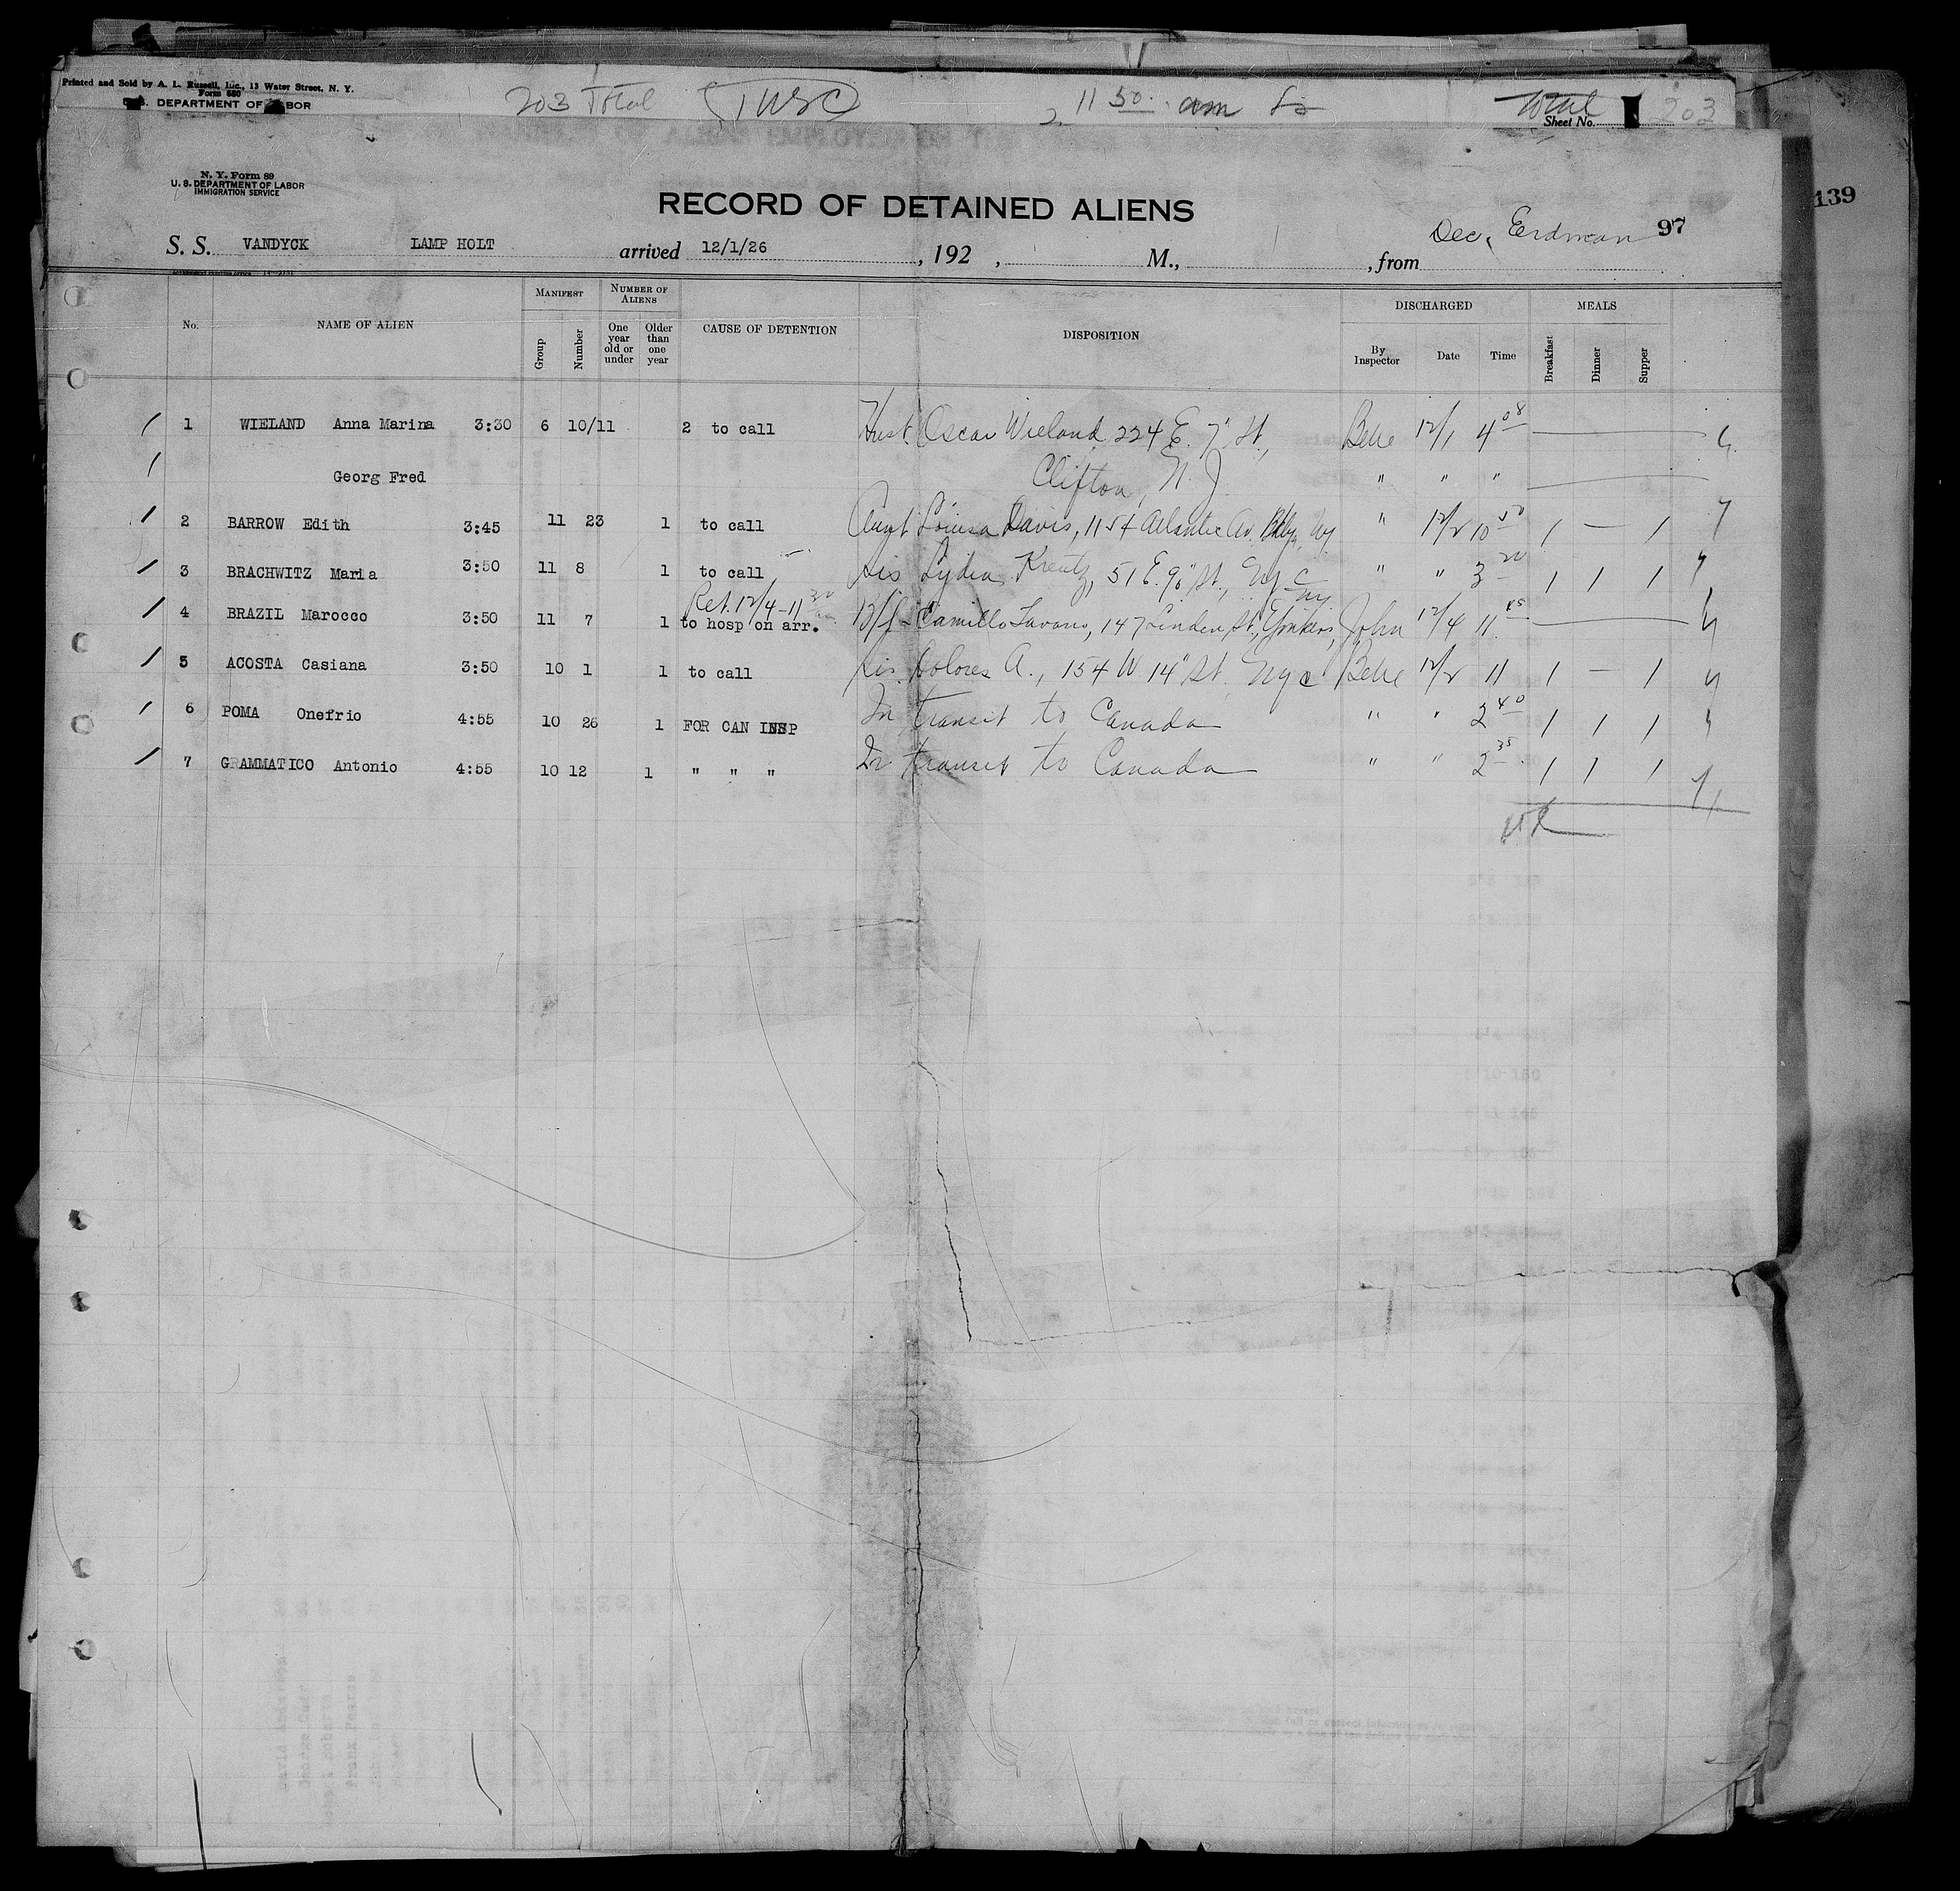 Printed and Sold by A. L. Russell, Inc., 13 Water Street, N. Y.
Form 680
U.S. DEPARTMENT OF LABOR
203 Total
11 50 am
Total 203
Sheet No.
139
N. Y. Form 89
U. S. DEPARTMENT OF LABOR
IMMIGRATION SERVICE
RECORD OF DETAINED ALIENS
Dec, Erdman 97
S. S. VANDYCK LAMP HOLT arrived 12/1/26, 192 , M., , from
No. NAME OF ALIEN MANIFEST Group Number NUMBER OF ALIENS One year old or under Older than one year CAUSE OF DETENTION DISPOSITION DISCHARGED By Inspector Date Time MEALS Breakfast Dinner Supper
1 WIELAND Anna Marina 3:30 6 10/11 2 to call Husb Oscar Wieland 224 E. 7" St., 12/1 4 08
Georg Fred Clifton, N. J. " " "
2 BARROW Edith 3:45 11 23 1 to call Aunt Louisa Davis, 1154 Atlantic Av. Bklyn Ny " 12/2 10 50 1 — 1
3 BRACHWITZ Maria 3:50 11 8 1 to call Sis Lydia Kreutz, 51 E. 96" St., NyC " " 3 20 1 1 1
Ret. 12/4-11 30
4 BRAZIL Marocco 3:50 11 7 1 to hosp on arr. B/f Camillo 147 Linden St., Yonkers, Ny John 12/4 11 45
5 ACOSTA Casiana 3:50 10 1 1 to call Sis Dolores A., 154 W 14" St. NyC 12/2 11 1 — 1
6 POMA Onefrio 4:55 10 26 1 FOR CAN INSP In transit to Canada " " 2 40 1 1 1
7 GRAMMATICO Antonio 4:55 10 12 1 " " " In transit to Canada " " 2 35 1 1 1